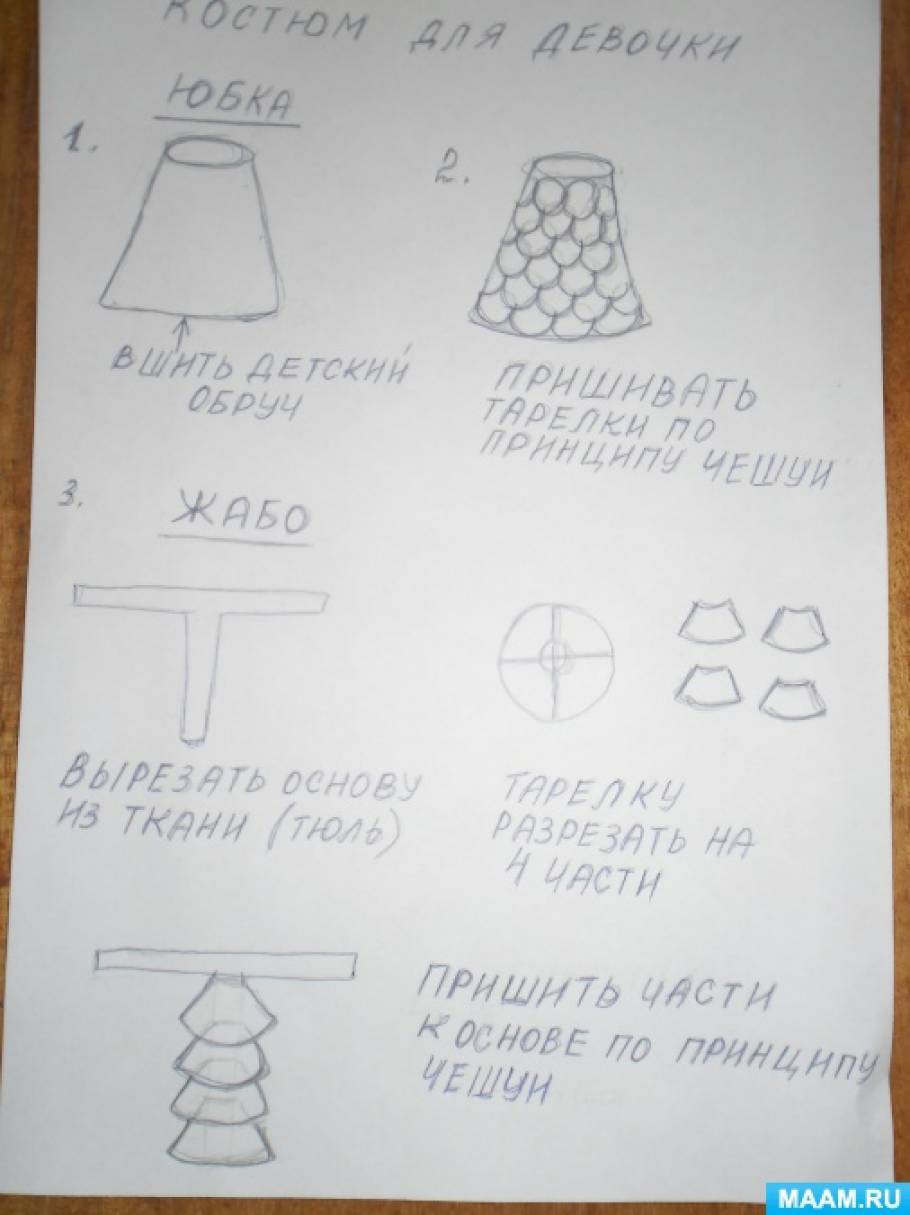 КОСТЮМ ДЛЯ ДЕВОЧКИ
ЮБКА
1.
2.
ВШИТЬ ДЕТСКИЙ
ОБРУЧ
ПРИШИВАТЬ
ТАРЕЛКИ ПО
ПРИНЦИПУ ЧЕШУИ
3.
ЖАБО
ВЫРЕЗАТЬ ОСНОВУ
ИЗ ТКАНИ (ТЮЛЬ)
ТАРЕЛКУ
РАЗРЕЗАТЬ НА
4 ЧАСТИ
ПРИШИТЬ ЧАСТИ
К ОСНОВЕ ПО ПРИНЦИПУ
ЧЕШУИ
MAAM.RU